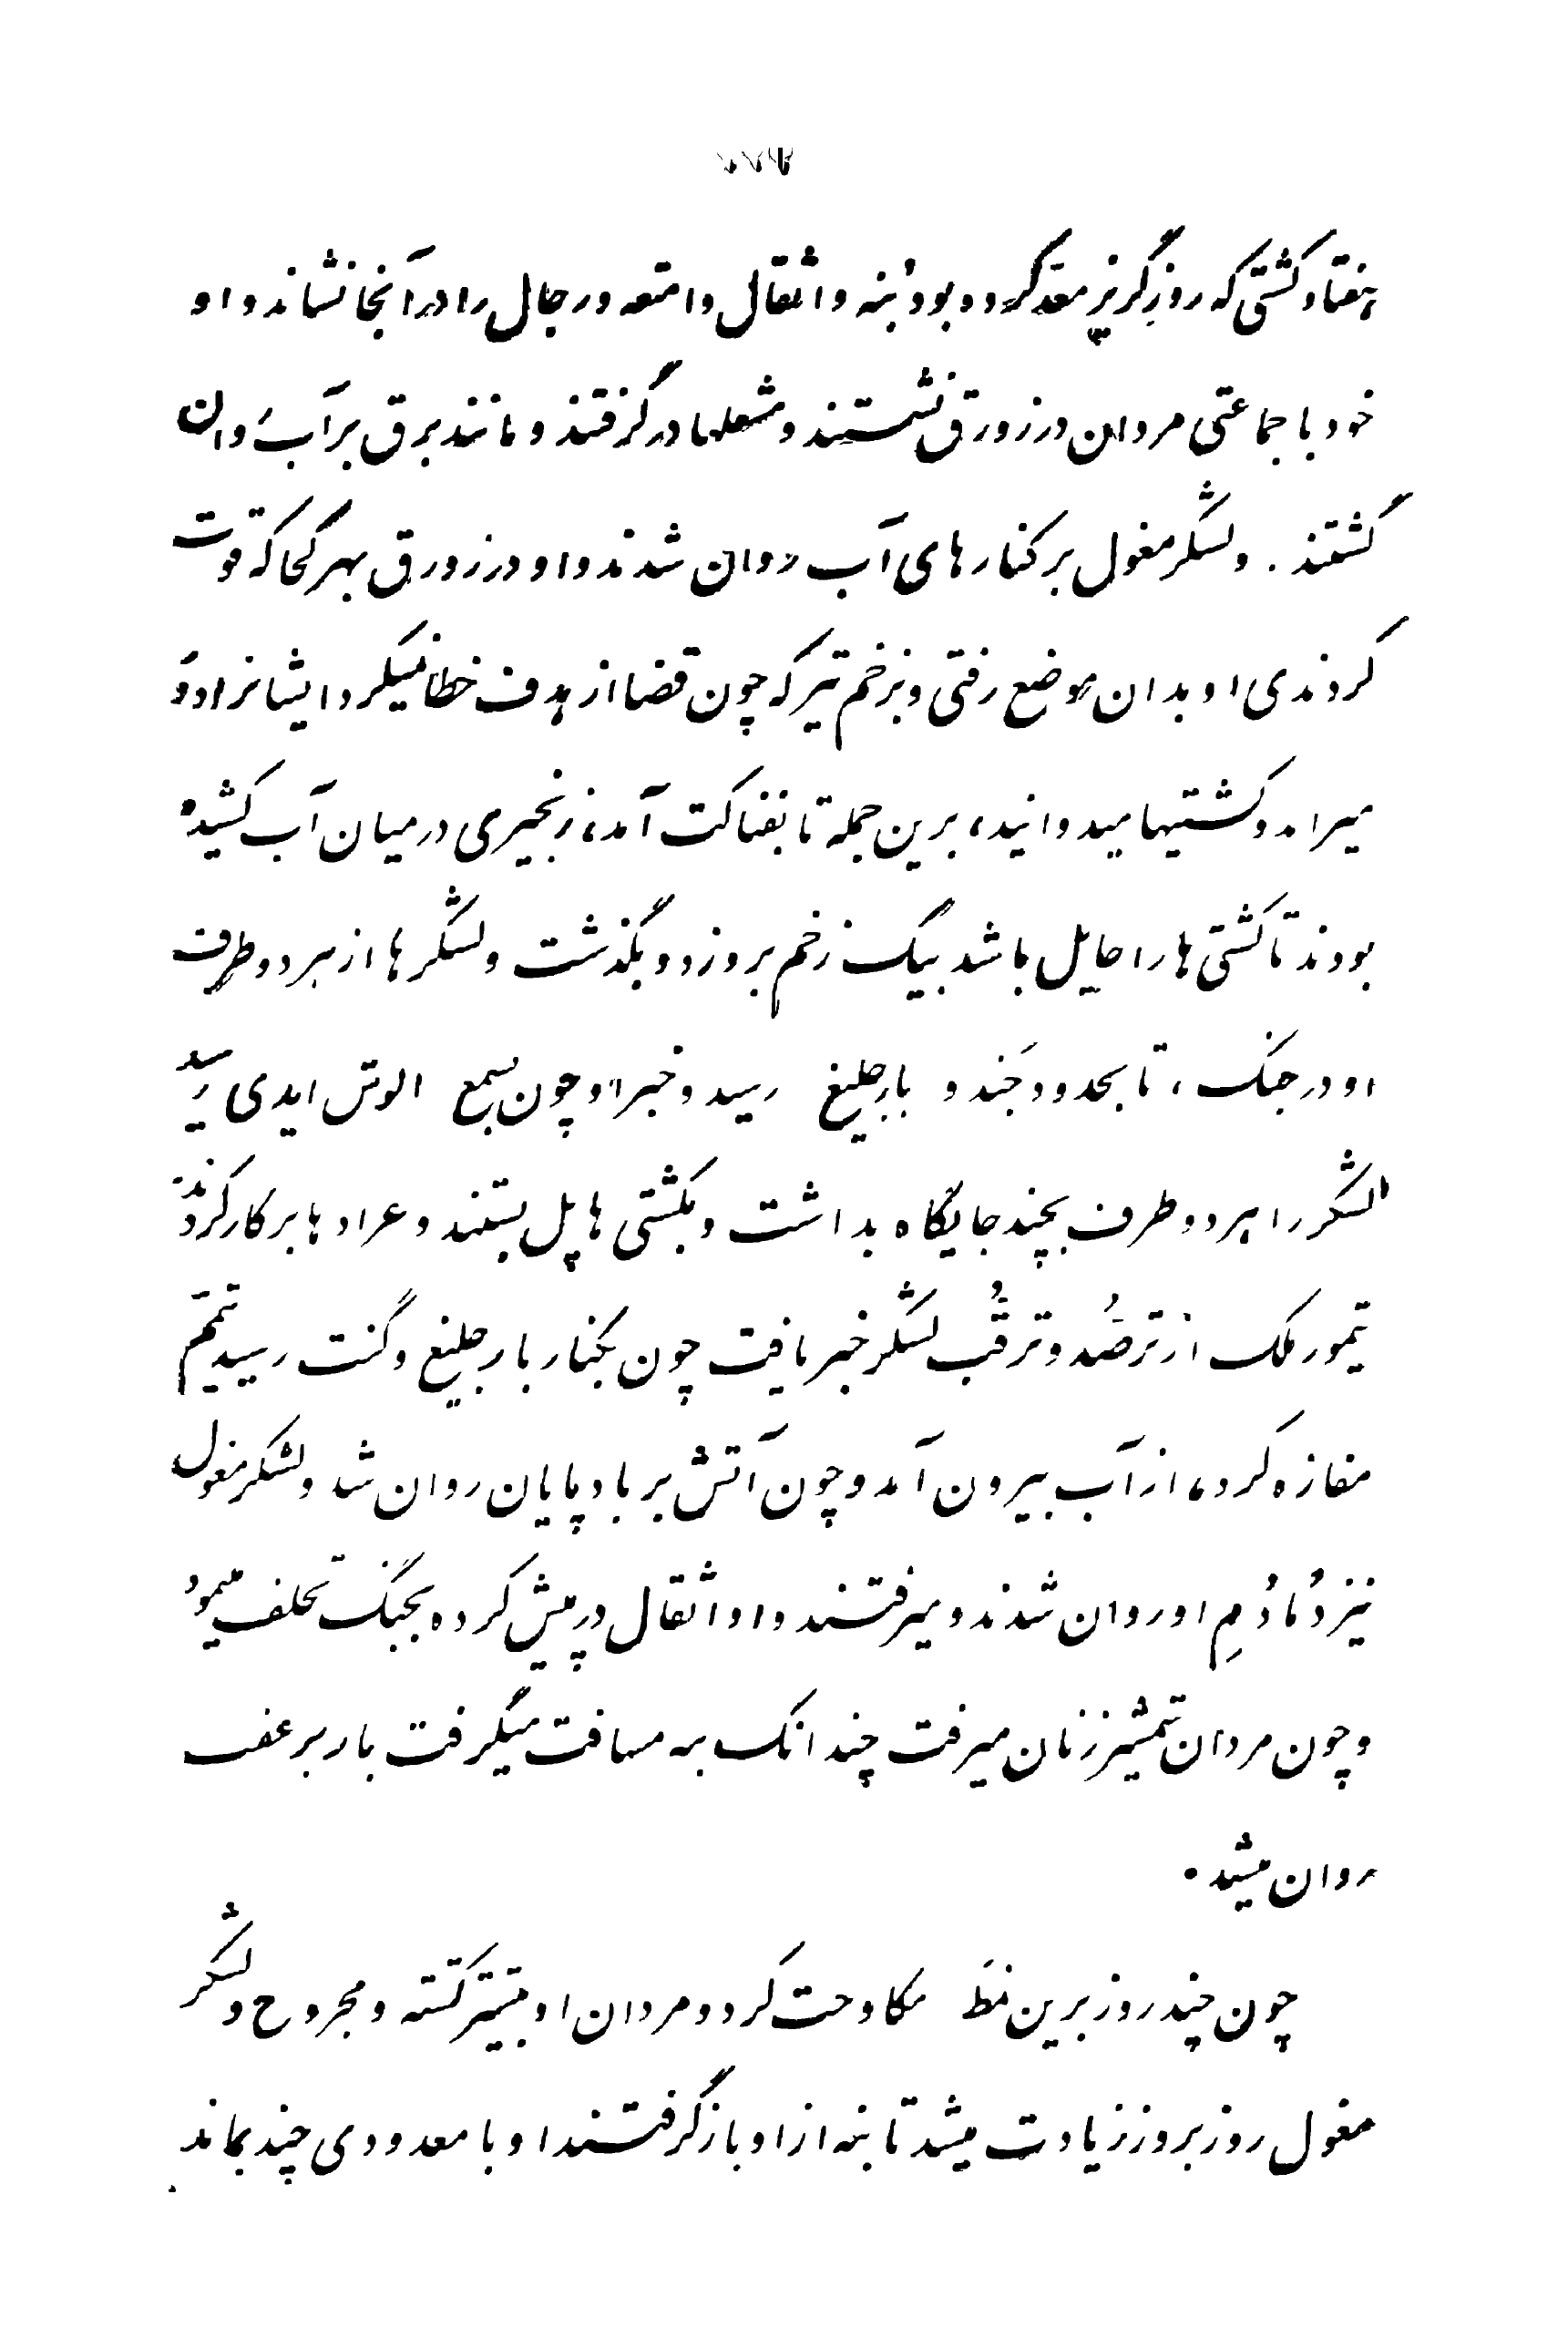 هفتاد کشتی که روز گریز معد کرده بود بُنه و اثقال و امتعه و رجال را در آنجا نشاند و او
خود با جماعتی مردان در زورق نشستند و مشعلها در گرفتند و مانند برق بر آب روان
گشتند . و لشگر مغول بر کنارهای آب روان شدند و او در زورق بهر کجا که قوت
کردندی او بدان موضع رفتی و بزخم تیر که چون قضا از هدف خطا نمیکرد ایشانرا دور
میراند و کشتیها میدوانید، برین جمله تا بفناکت آمد، زنجیری در میان آب کشیده
بودند تا کشتی ها را حایل باشد بیک زخم برو زد و بگذشت و لشگرها از هر دو طرف
او در جنگ ، تا بحدود جَند و بارجلیغ رسید و خبر او چون بسمع الوش ایدی رسید
لشگر را بهر دو طرف بچند جایگاه بداشت و بکشتی ها پل بستند و عرادها بر کار کردند
تیمور ملک از ترصُد و ترقُب لشگر خبر یافت چون بکنار بارجلیغ و کنت رسید تیمّم
مفازه کرد، از آب بیرون آمد و چون آتش بر باد پایان روان شد و لشکر مغول
نیز دُمادُمِ او روان شدند و میرفتند و او اثقال در پیش کرده بجنگ تخلف مینمود
و چون مردان شمشیر زنان میرفت چندانک بنه مسافت میگرفت باز بر عقب
روان میشد.
چون چند روز برین نمَط مکاوحت کرد و مردان او بیشتر کشته و مجروح و لشگر
مغول روز بروز زیادت میشد تا بنه از او باز گرفتند او با معدودی چند بماند